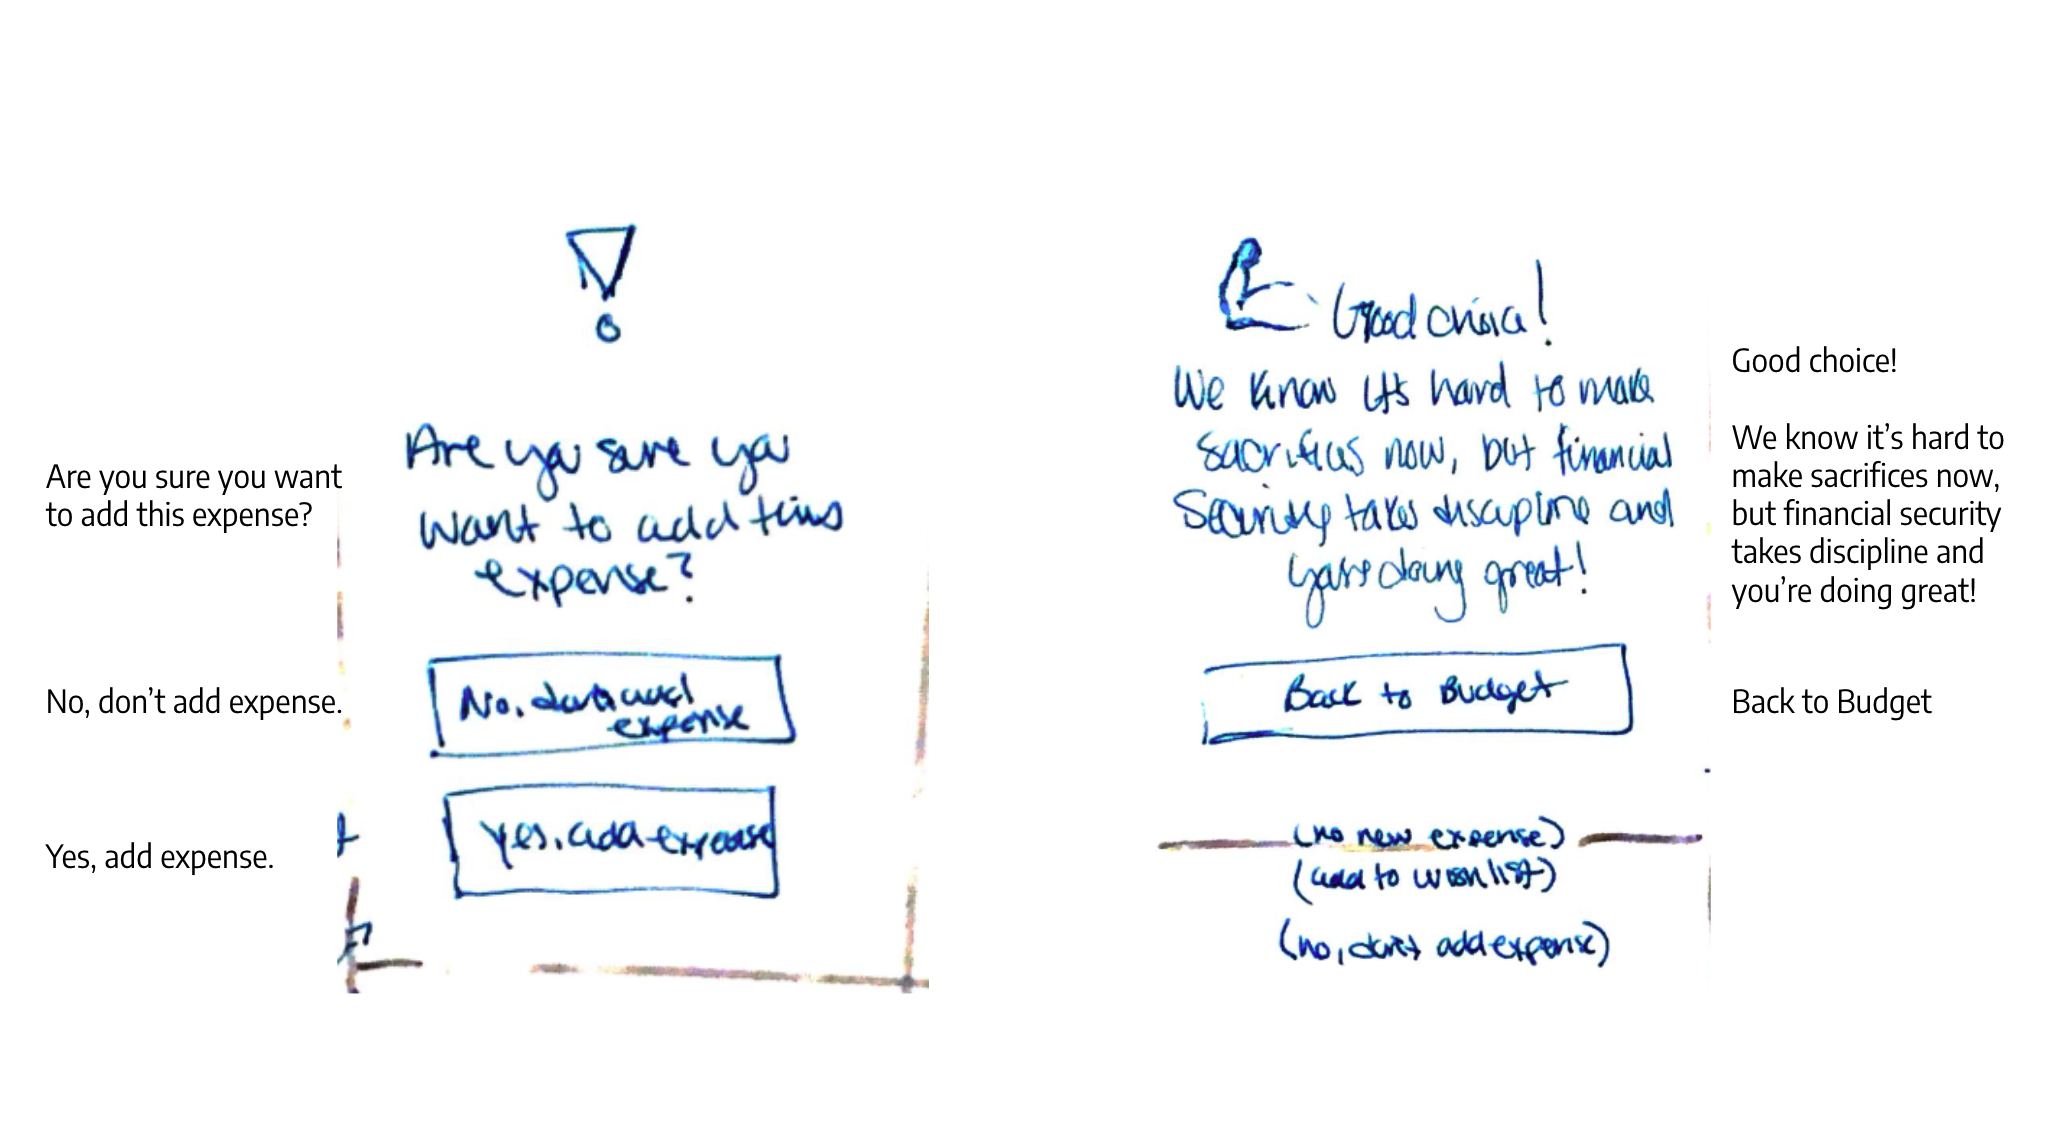 Are you sure you want
to add this expense?
No, don’t add expense.
Yes, add expense.
Are you sure you
want to add this
expense?
No, don't add
expense
Yes, add expense
Good choice!
We know it's hard to make
sacrifices now, but financial
security takes discipline and
you're doing great!
Back to Budget
(no new expense)
(add to wish list)
(no, don't add expense)
Good choice!
We know it’s hard to
make sacrifices now,
but financial security
takes discipline and
you’re doing great!
Back to Budget